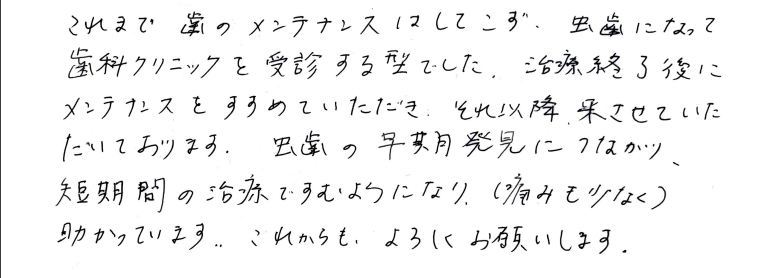 これまで 歯のメンテナンスはしてこず、虫歯になって
歯科クリニックを受診する型でした。治療終了後に
メンテナンスをすすめていただき、それ以降、来させていた
だいております。虫歯の早期発見につながり、
短期間の治療ですむようになり、(痛みも少なく)
助かっています。これからも、よろしくお願いします。